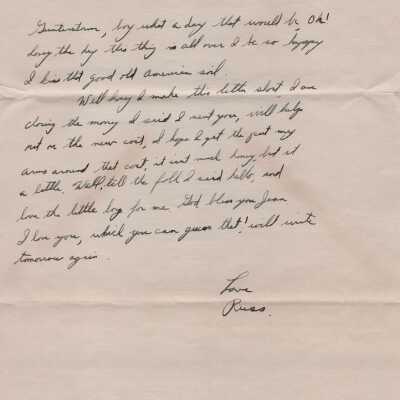 , boy what a day that would be Oh!
the day this thing is all over I be so happy
I kiss that good old American soil.
Well hony I make this letter short I am
closing the money I said I sent you, will help
out on the new coat, I hope I get the put my
arms around that coat, it isnt much hony but it
a little. Well, tell the folk I said hello, and
love the little boy for me. God bless you Jean
I love you, which you can guess that! will write
tomorrow again.
Love
Russ.